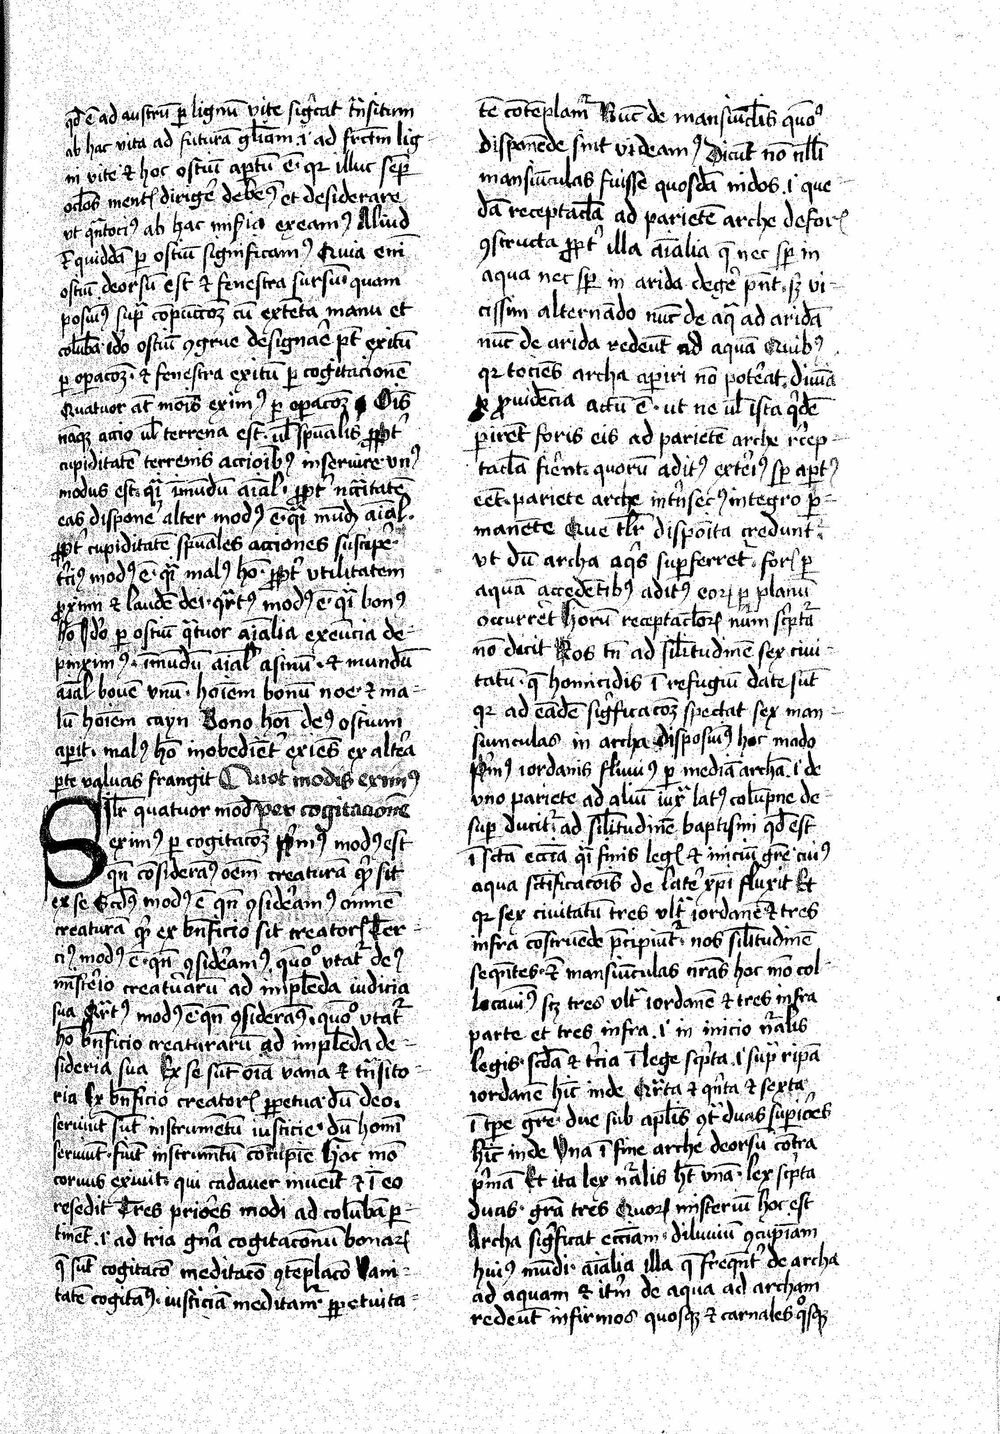 qd̄ ē ad austrū ꝑ lignū vite sigͨcat tͣnsitum
ab hac vita ad futurā gl̄iam .i. ad fructū lig-
ni vite ⁊ hoc ostiū aptū ē. qꝛ illuc semꝑ
oclōs mentꝭ dirigeˀ debemꝰ et desiderare
vt qͣntociꝰ ab hac misͥia exeamꝰ Aliud
⁊ quiddā ꝑ ostiū significamꝰ Quia em̄
ostiū deorsū est ⁊ fenestra sursū quam
posuiꝰ supͣ cū extēta manu et
ostiū ꝯgrue designaˀe pt̄ exitū
ꝑ opacoꝫ. ⁊ fenestra exitū ꝑ cogitacionē
Quatuor at̄ mois eximꝰ ꝑ opacoꝫ Oīs
nāqꝫ accio ul̄ terrena est. ul̄ sp̄ualis ꝓpt̉
cupiditatē terrenis accioībꝰ inseruire vnꝰ
modus est. qͣi īmūdū aīal. ꝓpt̉ nc̄citatē
eas disponeˀ alter modꝰ ē. qͣi mūdū aīal.
ꝓpt̉ cupiditatē sp̄uales acciones suscipeˀ
t̉ciꝰ modꝰ ē. qͣi malꝰ hō. ꝓpt̉ vtilitatem
ꝓximi ⁊ laudē dei. qͣrtꝰ modꝰ ē. qͣi bonꝰ
hō Idͦo ꝑ ostiū qͣtuor aīalia exeūcia de-
pinximꝰ. īmūdū aīal asinū. ⁊ mundū
aīal bouē vnū. hoīem bonū noe. ⁊ ma-
lū hoīem cayn Bono hoī deꝰ ostium
aꝑit. malꝰ hō inobediēt̉ exiēs ex alteˀa
ꝑte valuas frangit Quot modis eximꝰ
Silr̄ quatuor mod̄ per cogitacionē
eximꝰ ꝑ cogitacoꝫ Pͥmꝰ modꝰ est
qn̄ cōsideramꝰ oēm creaturā qͦ sit
ex se Scd̄s modꝰ ē qn̄ ꝯsideˀamꝰ omnē
creaturā qͦ ex bn̄ficio sit creatorꝭ Ter-
ciꝰ modꝰ ē. qn̄ ꝯsideˀamꝰ quōͦ vtat̉ deꝰ
mīsteˀio creatuˀarū ad implēda iudicia
sua Qͣrtꝰ modꝰ ē qn̄ ꝯsideramꝰ. quōͦ vtat̉
hō bn̄ficio creaturarū ad implēda de-
sideria sua Ex se sūt oīa vana ⁊ tͣnsito-
ria Ex bn̄ficio creatorꝭ ꝑpetua dū deo
seruiūt sūt instrumētū iusticie. dū homī
seruiūt. fiūt instrumētū Hoc mō
coruus exiuit. qui cadauer inueīt ⁊ ī eo
resedit Tres prioˀes modi ad colūbā ꝑ-
tinēt .i. ad tria gnͣa cogitacōnū bonarꝭ
q̄ sūt cogitacō meditacō ꝯtēplacō Vani-
tatē cogitamꝰ. iusticiā meditamr̉ ꝑpetuita-
tē cōtēplamr̉ Nūc de māsiūcl̄is quōͦ
disponēde sint videamꝰ Dicūt nō null̄i
mansiūculas fuisse quosdā nidos .i. que-
dā receptacl̄a ad parietē arche deforꝭ
ꝯstructa ꝓpt̉ illa aīalia q̄ nec sꝑ in
aqua nec sꝑ in arida degeˀ pn̄t. sꝫ vi-
cissim alternādo nūc de aqͣ ad aridā
nūc de arida redeūt ad aquā Quibꝰ
qꝛ tociēs archa aperiri nō poteˀat. diuīa
ꝓuidēcia actū ē. ut ne ul̄ ista qͥdē
ꝑirēt foris eis ad parietē arche rēcep-
tacl̄a fieˀnt. quorū aditꝰ exteˀiꝰ sꝑ aptꝰ
eēt. pariete arche intͥnsecꝰ integro ꝑ-
manēte Que tl̄r disposita credunt̉.
vt dū archa aqͥs suꝑferret̉. forꝭ ꝑ
aquā accedētibꝰ aditꝰ eorꝭ ꝑ planū
occurrēt Horū receptacl̄orꝭ nūm scͥpta
nō dicit Nos tn̄ ad sil̄itudinē sex ciui-
tatū. q̄ homicidis ī refugiū date sūt
qꝛ ad eādē sigͥficacoꝫ spectat sex man-
siunculas in archa disposuiꝰ hoc modo
Pͥmꝰ iordanis fluuiꝰ ꝑ mediā archā .i. de
vno pariete ad aliū iuxͣ latꝰ colūpne de-
suꝑ ducit̉. ad sil̄itudinē baptismi qd̄ est
ī scā ecc̄ia qͣi finis legꝭ ⁊ iniciū gr̄e cuiꝰ
aqua sc̄ificacois de lateˀ xp̄i fluxit Et
qꝛ sex ciuitatū tres ultͣ iordanē ⁊ tres
infra cōstruēde p̄cipiūt̉. nos sil̄itudinē
seqn̄tes. ⁊ mansiūculas nr̄as hoc mō col-
locauiꝰ scꝫ tres ultͣ iordanē ⁊ tres infra
parte et tres infra .i. in inicio nͣalis
legis. scd̄a ⁊ t̉cia ī lege scͥpta .i. supͣ ripā
iordanē hīc inde Qͣrta ⁊ qͥnta ⁊ sexta
ī tp̄e gr̄e. due sub ap̄lis ꝯtͣ duas suꝑioˀes
hīc inde Vna ī fine arche deorsū cōtra
pͥmā Et ita lex nͣalis hꝫ vnā. lex scͥpta
duas. grā tres Quorꝭ misteriū hoc est
Archa sigͥficat ecc̄iam. diluuiū ꝯcupiam
huiꝰ mūdi. aīalia illa q̄ freqn̄t̉ de archa
ad aquam ⁊ itm̄ de aqua ad archam
redeūt infirmos quosqꝫ ⁊ carnales qͦsqꝫ